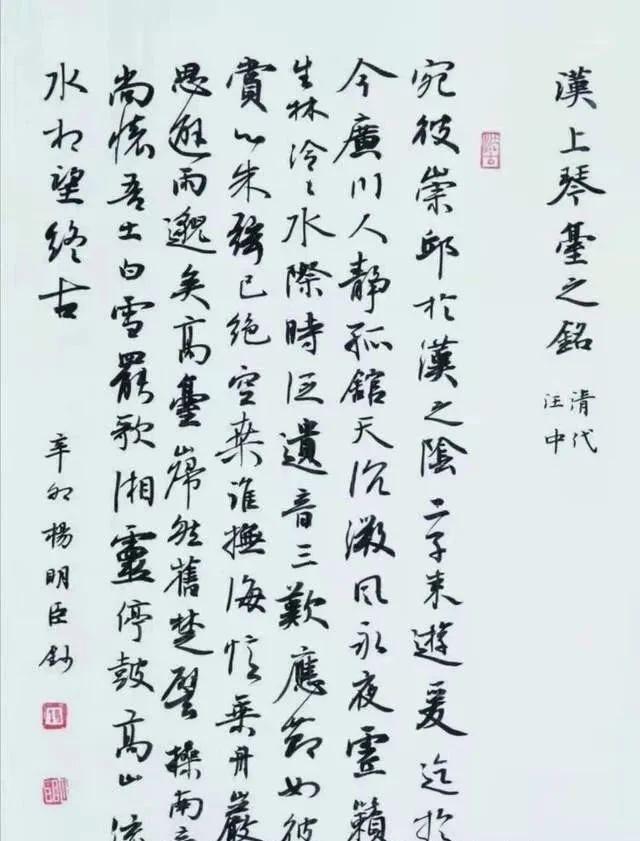 漢上琴臺之銘
清代
汪中
宛彼崇邱於漢之陰二子来遊爰迄於
今廣川人靜孤館天沉微風永夜靈籟
生林泠々水際時泛遺音三歎應節如彼
賞心朱絃已絶空桒誰撫海憶乗舟巖
思避雨邈矣高臺巋然舊楚譬操南音
尚懷吾土白雪罷歌湘靈停鼓高山流
水相望終古
辛卯楊明臣鈔